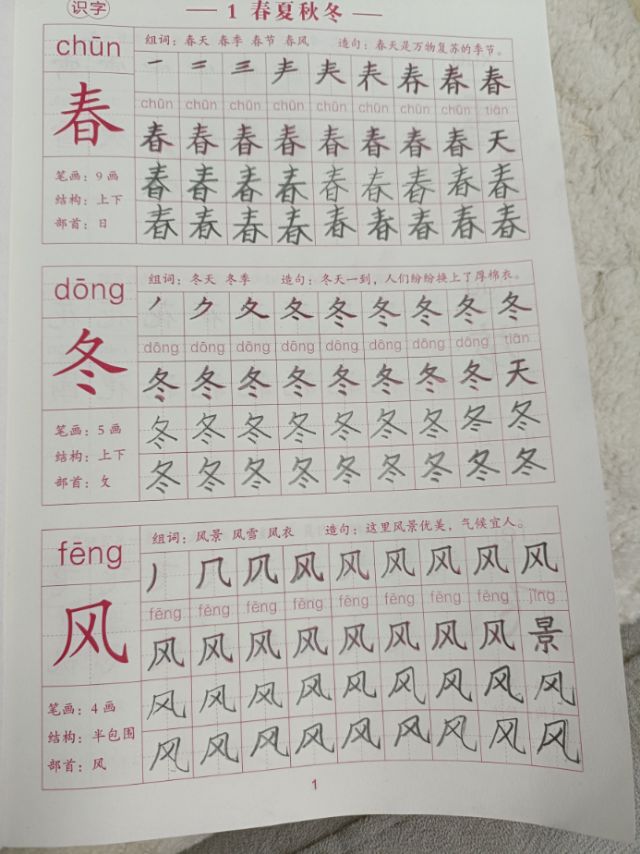 识字
1 春夏秋冬
chūn
组词：春天 春季 春节 春风 造句：春天是万物复苏的季节。
春
一 二 三 𡗗 春 春
chūn chūn chūn chūn chūn chūn chūn chūn tiān
春 春 春 春 春 春 春 春 天
笔画：9 画
结构：上下
部首：日
春 春 春 春 春 春 春 春 春
春 春 春 春 春 春 春 春 春
dōng
组词：冬天 冬季 造句：冬天一到，人们纷纷换上了厚棉衣。
冬
丿 ク 夂 冬 冬 冬 冬 冬 冬
dōng dōng dōng dōng dōng dōng dōng dōng tiān
冬 冬 冬 冬 冬 冬 冬 冬 天
笔画：5 画
结构：上下
部首：夂
冬 冬 冬 冬 冬 冬 冬 冬 冬
冬 冬 冬 冬 冬 冬 冬 冬 冬
fēng
组词：风景 风雪 风衣 造句：这里风景优美，气候宜人。
风
丿 几 风 风 风 风 风 风
fēng fēng fēng fēng fēng fēng fēng fēng jǐng
风 风 风 风 风 风 风 风 景
笔画：4 画
结构：半包围
部首：风
风 风 风 风 风 风 风 风 风
风 风 风 风 风 风 风 风 风
1